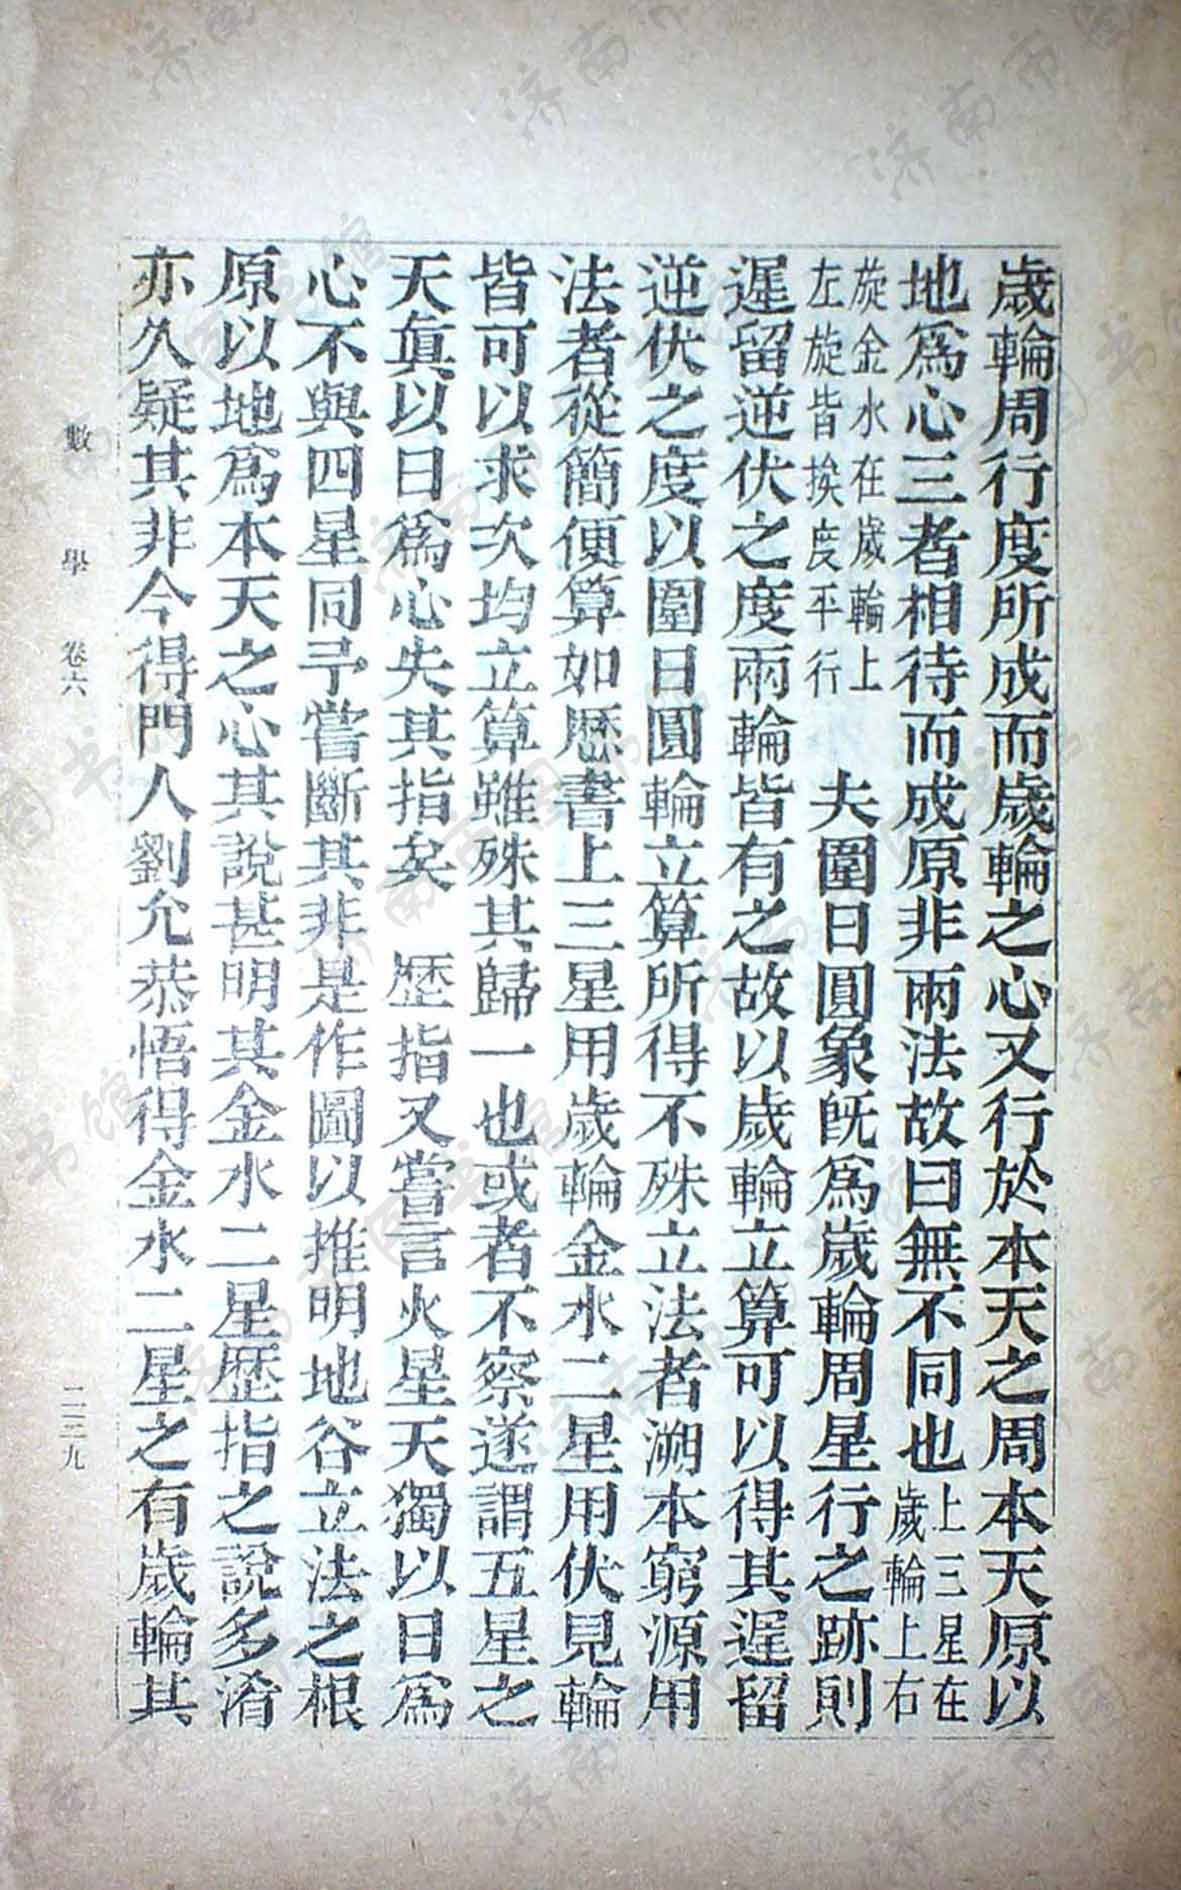 歲輪周行度所成而歲輪之心又行於本天之周本天原以
地爲心三者相待而成原非兩法故曰無不同也上三星在歲輪上右
旋金水在歲輪上左旋皆挨度平行 夫圍日圓象旣爲歲輪周星行之跡則
遲留逆伏之度兩輪皆有之故以歲輪立算可以得其遲留
逆伏之度以圍日圓輪立算所得不殊立法者溯本窮源用
法者從簡便算如厯書上三星用歲輪金水二星用伏見輪
皆可以求次均立算雖殊其歸一也或者不察遂謂五星之
天眞以日爲心失其指矣 厯指又嘗言火星天獨以日爲
心不與四星同予嘗斷其非是作圖以推明地谷立法之根
原以地爲本天之心其說甚明其金水二星厯指之說多淆
亦久疑其非今得門人劉允恭悟得金水二星之有歲輪其
數學 卷六 二三九
济南市图书馆